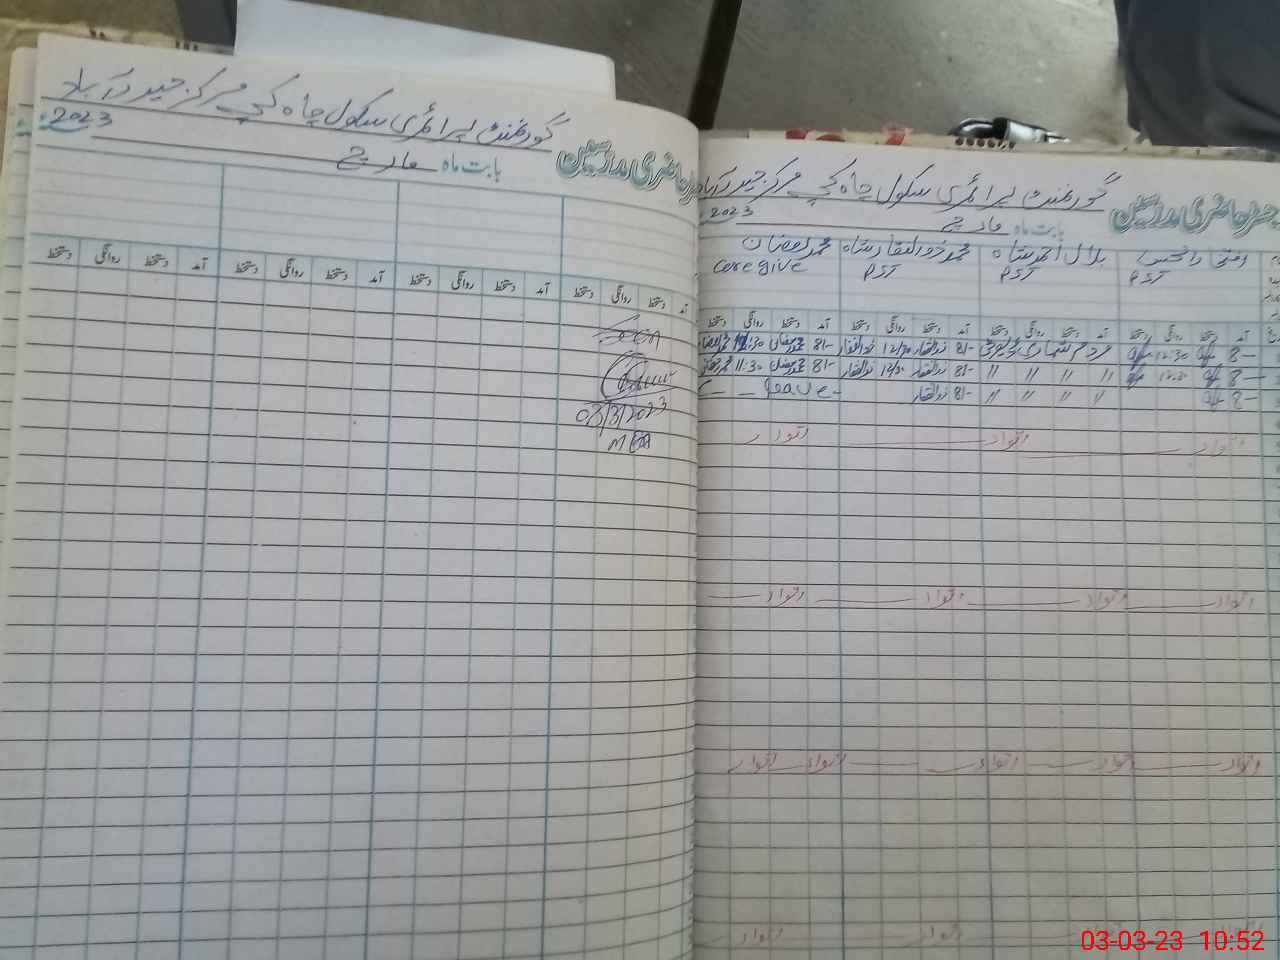 رجسٹر حاضری مدرسین
گورنمنٹ پرائمری سکول چاہ کچے مرکز حیدرآباد
بابت ماہ مارچ 2023
محمد ذوالفقار شاہ PST
بلال احمد شاہ PST
PST
محمد رمضان Caregive
آمد دستخط روانگی دستخط آمد دستخط روانگی دستخط آمد دستخط روانگی دستخط آمد دستخط روانگی دستخط
8- 12:30 مردم شماری ڈیوٹی 8/- ذوالفقار 12/30 ذوالفقار 8/- محمد رمضان 11:30 محمد رمضان
8- 12:30 〃 〃 〃 〃 8/- ذوالفقار 12/30 ذوالفقار 8/- محمد رمضان 11:30 محمد رمضان
8- 〃 〃 〃 〃 8/- ذوالفقار - Leave -
اتوار اتوار اتوار
اتوار اتوار اتوار اتوار
اتوار اتوار اتوار اتوار اتوار
اتوار اتوار
حاضری مدرسین
گورنمنٹ پرائمری سکول چاہ کچے مرکز حیدرآباد
بابت ماہ مارچ 2023
آمد دستخط روانگی دستخط آمد دستخط روانگی دستخط آمد دستخط روانگی دستخط آمد دستخط روانگی دستخط
03/3/2023
MEA
03-03-23 10:52